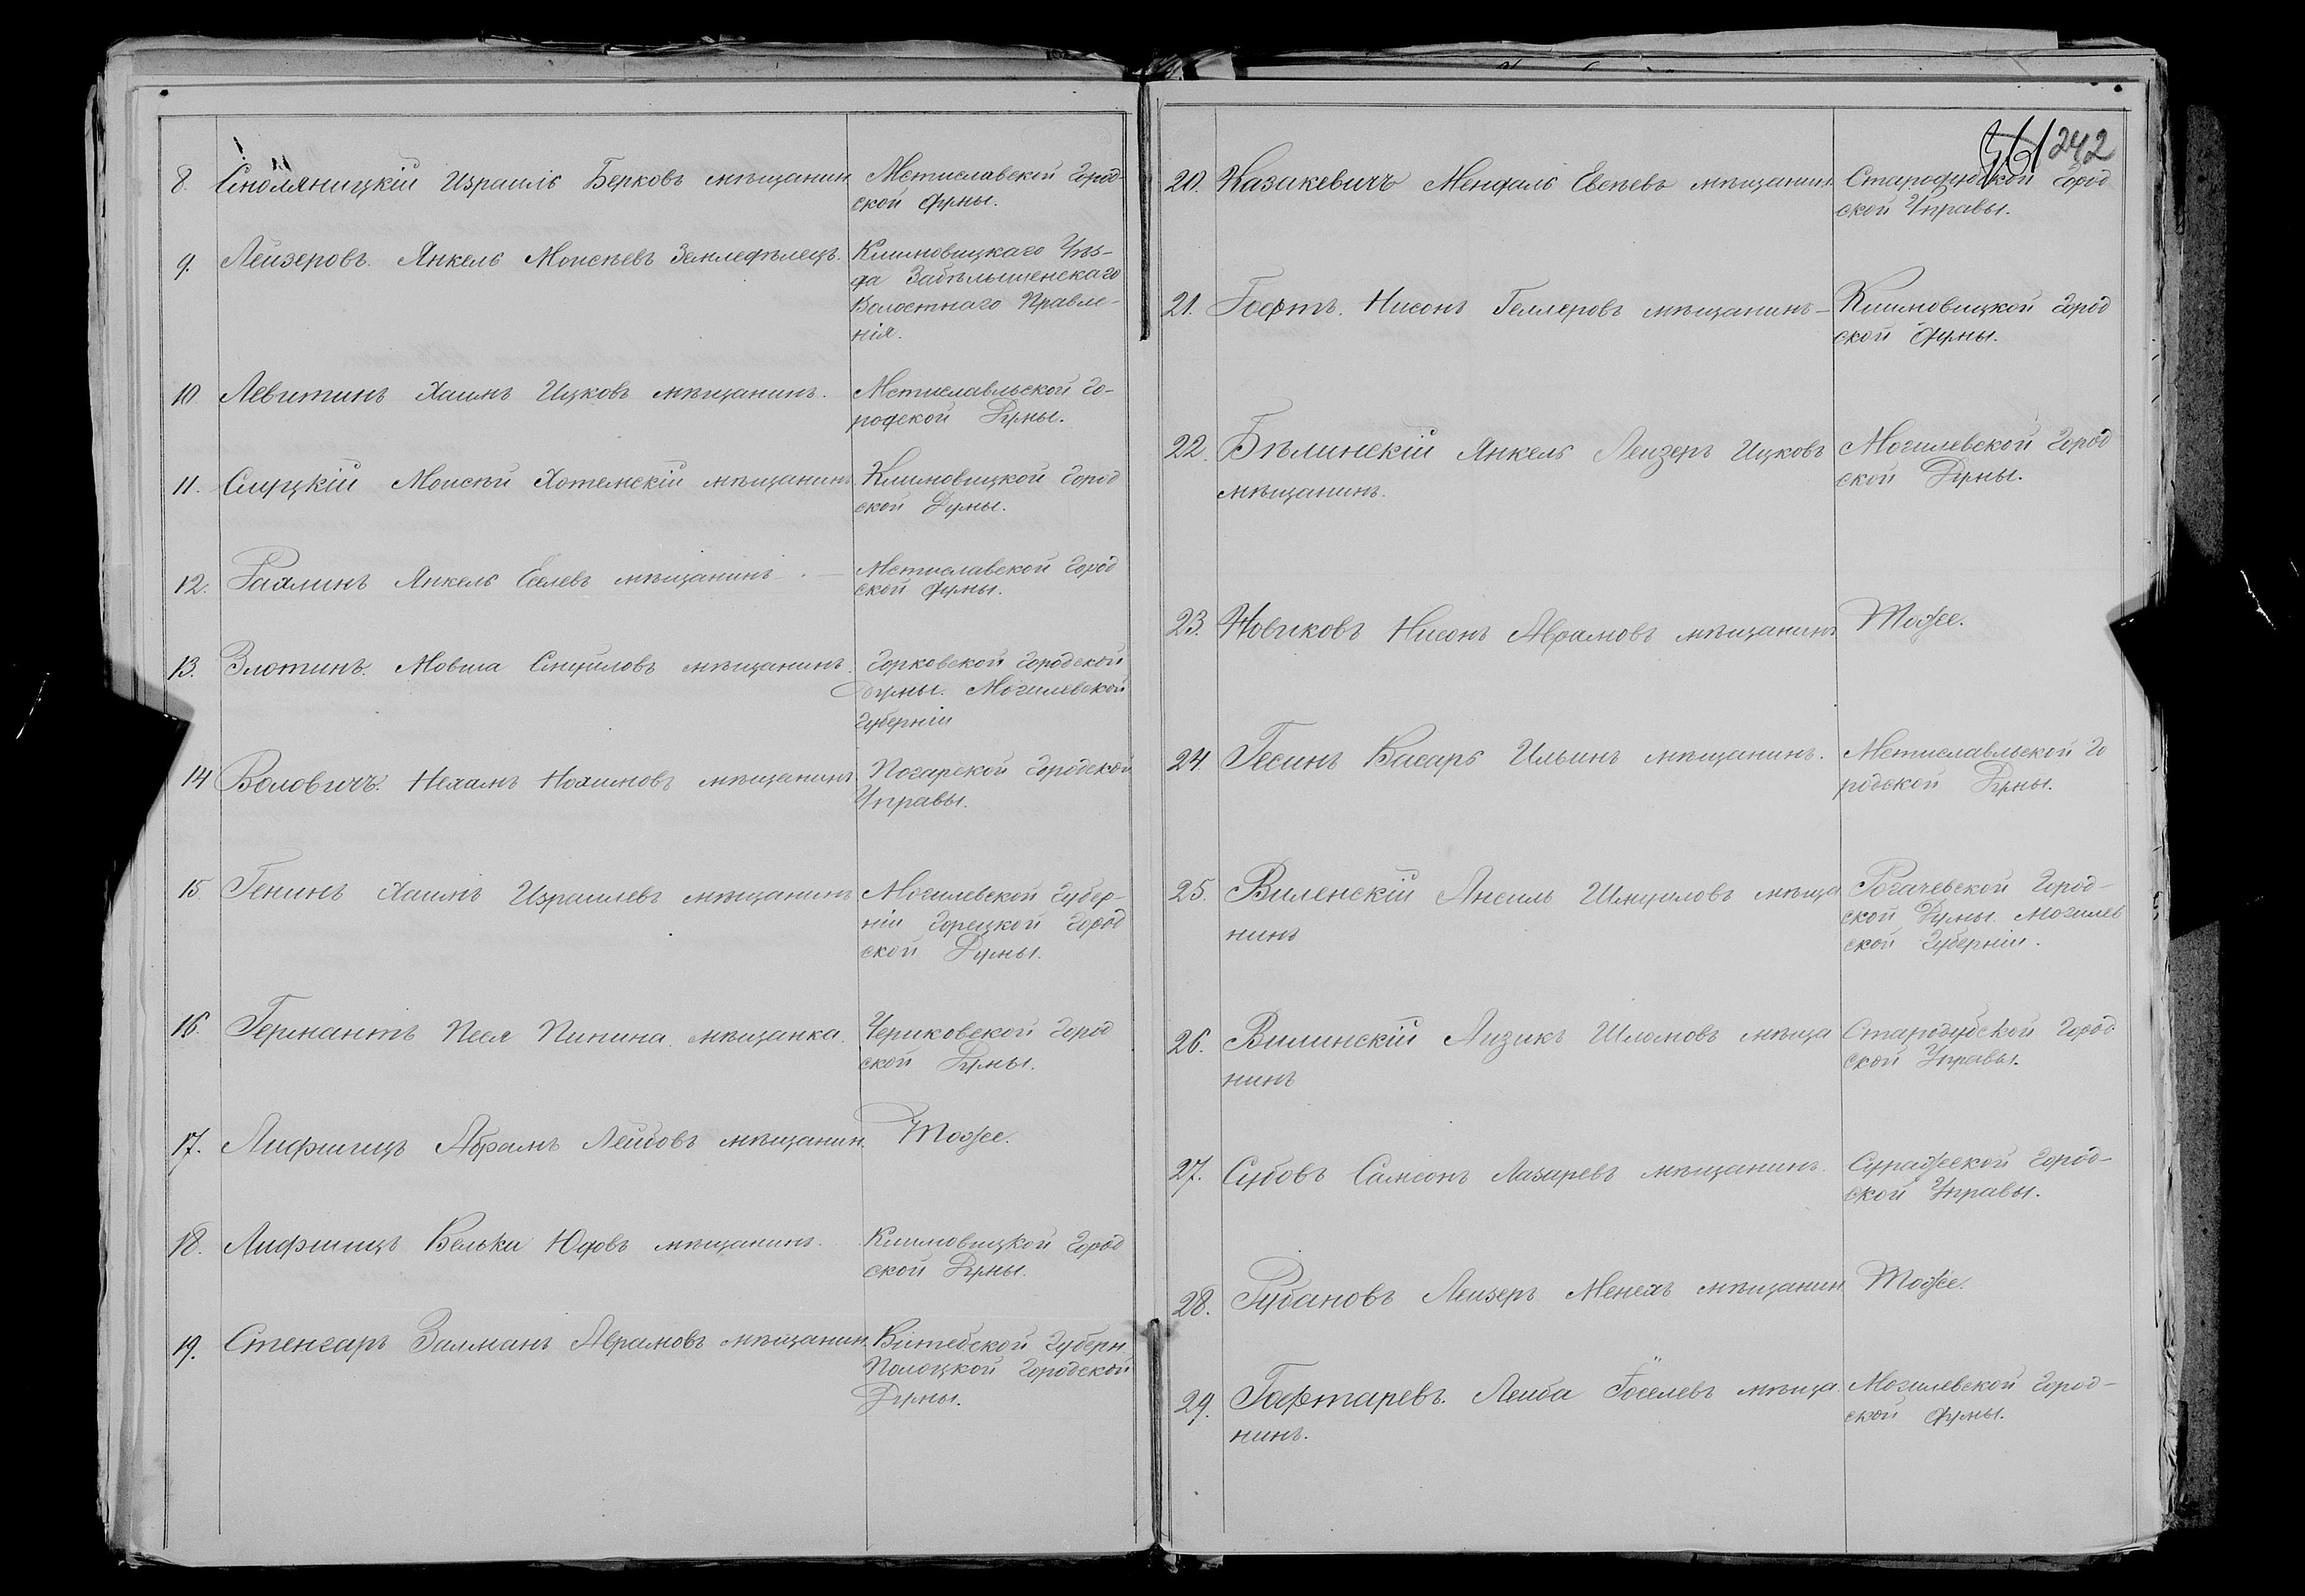 8. Смоляницкій Израиль Берковъ мѣщанин Мстиславской Город-
ской Думы.
9. Лейзеровъ. Янкель Моисѣевъ Земледѣлецъ. Климовицкаго Уѣз-
да Забѣлышенскаго
Волостнаго Правле-
нія.
10. Левитинъ Хаимъ Ицковъ мѣщанинъ. Мстиславльской Го-
родской Думы.
11. Слуцкій Моисѣй Хотемскій мѣщанинъ Климовицкой Город
ской Думы.
12. Рахлинъ Янкель Еселевъ мѣщанинъ. — Мстиславской Город
ской Думы.
13. Злотинъ. Мовша Смуиловъ мѣщанинъ. Горковской Городской
Думы. Могилевской
Губерніи
14 Воловичъ. Нехамъ Нохимовъ мѣщанинъ. Погарской Городской
Управы.
15. Генинъ Хаимъ Израилевъ мѣщанинъ Могилевской Губер-
ніи Горецкой Город
ской Думы.
16. Германтъ Песя Пинина мѣщанка. Чериковской Город
ской Думы.
17. Лифшицъ Абрамъ Лейбовъ мѣщанин. Тоже.
18. Лифшицъ Велька Юдовъ мѣщанинъ. Климовицкой Город
ской Думы.
19. Стенгаръ Залманъ Абрамовъ мѣщанин. Витебской Губерн.
Полоцкой Городской
Думы.
242
20. Казакевичъ Мендаль Евсѣевъ мѣщанинъ. Стародубской Город
ской Управы.
21. Гофтъ. Нисонъ Геллеровъ мѣщанинъ— Климовицкой Город
ской Думы.
22. Бѣлинскій Янкель Лейзеръ Ицковъ Могилевской Город
мѣщанинъ. ской Думы.
23. Новиковъ Нисонъ Абрамовъ мѣщанинъ Тоже.
24. Гесинъ Касарь Ильинъ мѣщанинъ. Мстиславльской Го
родской Думы.
25. Виленскій Ансиль Шмуиловъ мѣща Рогачевской Город-
нинъ ской Думы. Могилев
ской Губерніи.
26. Вилинскій Айзикъ Шломовъ мѣща Стародубской Город
нинъ ской Управы.
27. Субовъ Самсонъ Лазаревъ мѣщанинъ. Суражской Город-
ской Управы.
28. Рубановъ Лейзеръ Менехъ мѣщанин Тоже.
29. Гафтаревъ. Лейба Іоселевъ мѣща. Могилевской Город-
нинъ. ской Думы.